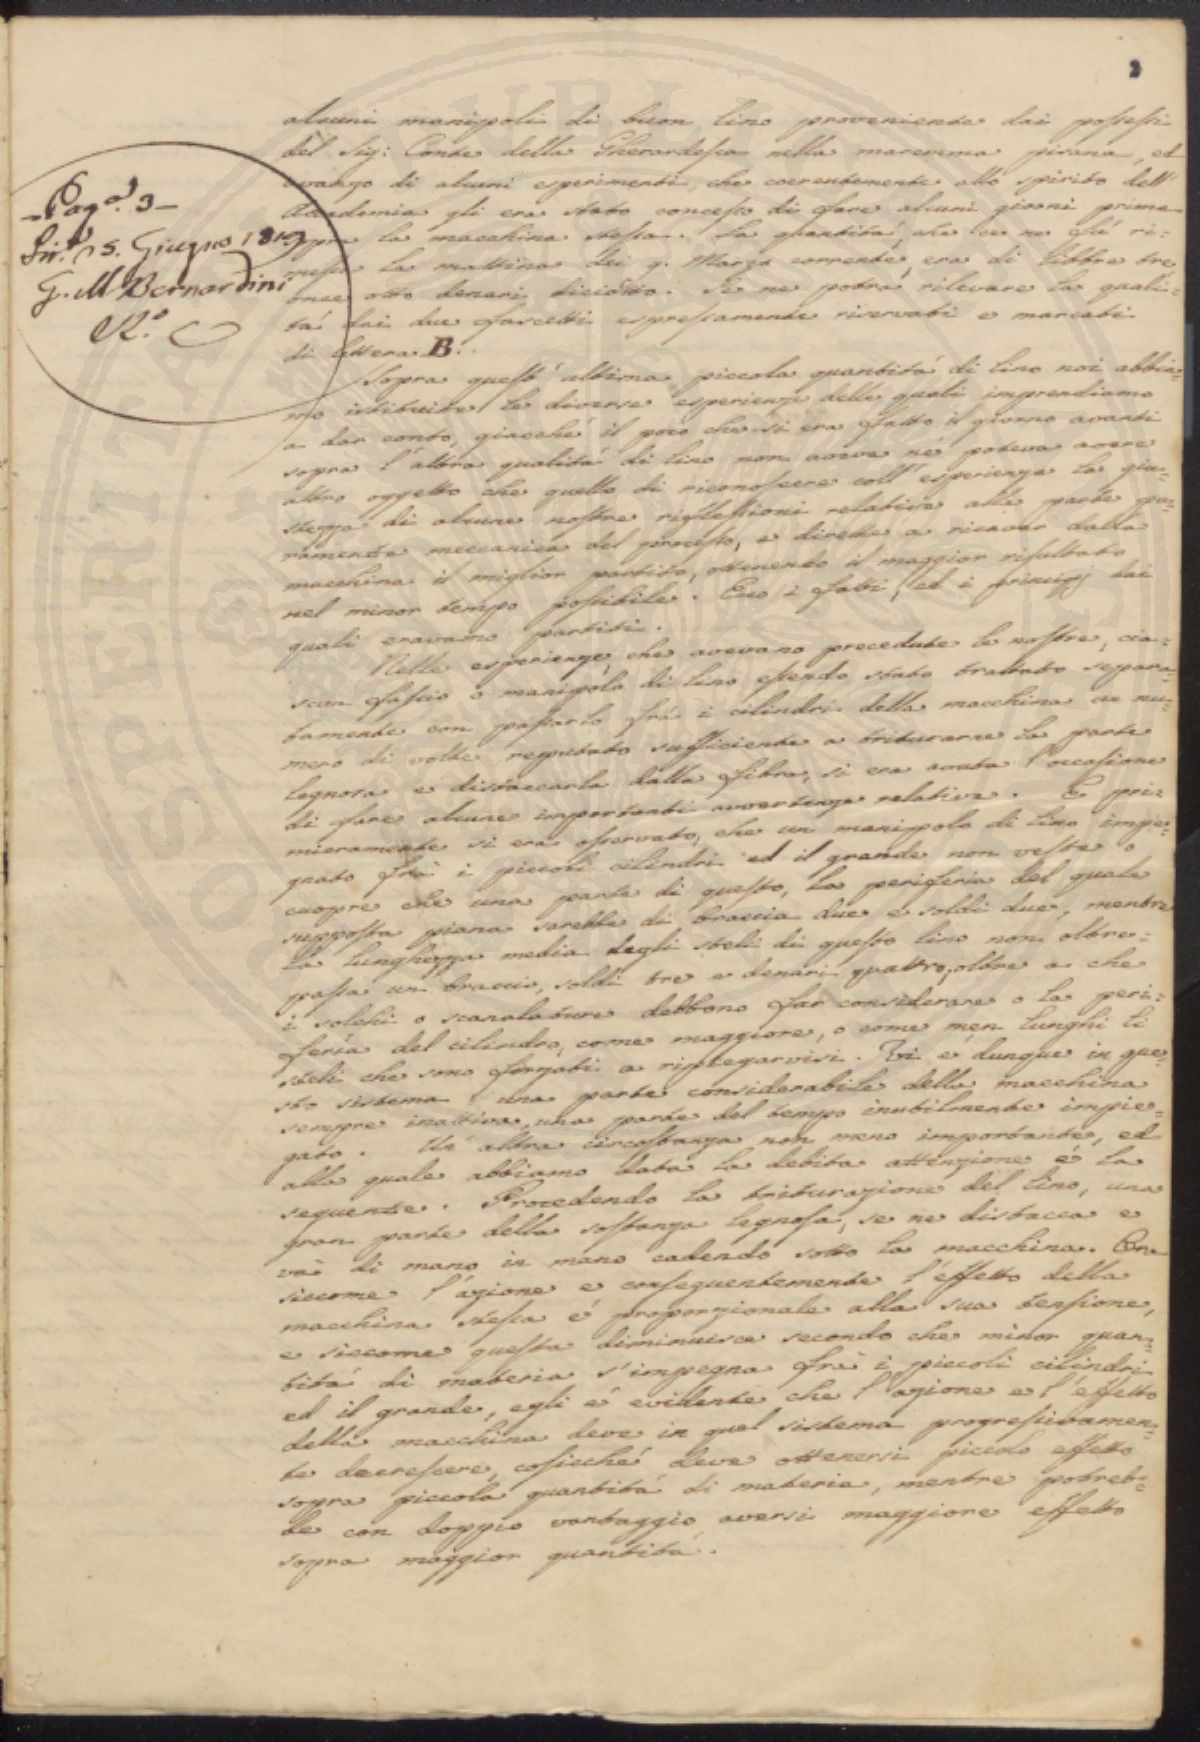 2
alcuni manipoli di buon lino proveniente dai possessi
del Sig: Conte della Gherardesca nella maremma pisana, ed
avanzo di alcuni esperimenti, che coerentemente allo spirito dell'
Accademia gli era stato concesso di fare alcuni giorni prima
sopra la macchina stessa. La quantità, che ce ne fù ri=
messa la mattina dei 9. Marzo corrente, era di libbre tre
once otto denari diciotto. Se ne potrà rilevare la quali=
tà dai due fascetti espressamente riservati e marcati
di lettera B.
-Pag.ª 3-
Lì 15. Giugno 1819
G. M Bernardini
Sopra quest'ultima piccola quantità di lino noi abbia=
mo istituite le diverse esperienze delle quali imprendiamo
a dar conto, giacchè il poco che si era fatto il giorno avanti
sopra l'altra qualità di lino non aveva nè poteva avere
altro oggetto che quello di riconoscere coll'esperienza la giu=
stezza di alcune nostre riflessioni relative alla parte pu=
ramente meccanica del processo, e dirette a ricavar dalla
macchina il miglior partito, ottenendo il maggior risultato
nel minor tempo possibile. Ecco i fatti, ed i principj dai
quali eravamo partiti.
Nelle esperienze, che avevano precedute le nostre, cia=
scun fascio o manipolo di lino essendo stato trattato separa=
tamente con passarlo frà i cilindri della macchina un nu=
mero di volte reputato sufficiente a triturarne la parte
legnosa e distaccarla dalla fibra, si era avuta l'occasione
di fare alcune importanti avvertenze relative. E pri=
mieramente si era osservato, che un manipolo di lino impe=
gnato frà i piccoli cilindri ed il grande non veste o
cuopre che una parte di questo, la periferia del quale
supposta piana sarebbe di braccia due e soldi due, mentre
la lunghezza media degli steli di questo lino non oltre=
passa un braccio, soldi tre e denari quattro, oltre a che
i solchi o scanalature debbono far considerare o la peri=
feria del cilindro, come maggiore, o come men lunghi li
steli che sono forzati a ripiegarvisi. Vi è dunque in que=
sto sistema una parte considerabile della macchina
sempre inattiva, una parte del tempo inutilmente impie=
gato. Un'altra circostanza non meno importante, ed
alla quale abbiamo data la debita attenzione è la
seguente. Procedendo la triturazione del lino, una
gran parte della sostanza legnosa, se ne distacca e
và di mano in mano cadendo sotto la macchina. Ora
siccome l'azione e conseguentemente l'effetto della
macchina stessa è proporzionale alla sua tensione,
e siccome questa diminuisce secondo che minor quan=
tità di materia s'impegna frà i piccoli cilindri
ed il grande, egli è evidente che l'azione e l'effetto
della macchina deve in quel sistema progressivamen=
te decrescere, cosicchè deve ottenersi piccolo effetto
sopra piccola quantità di materia, mentre potreb=
be con doppio vantaggio aversi maggiore effetto
sopra maggior quantità.